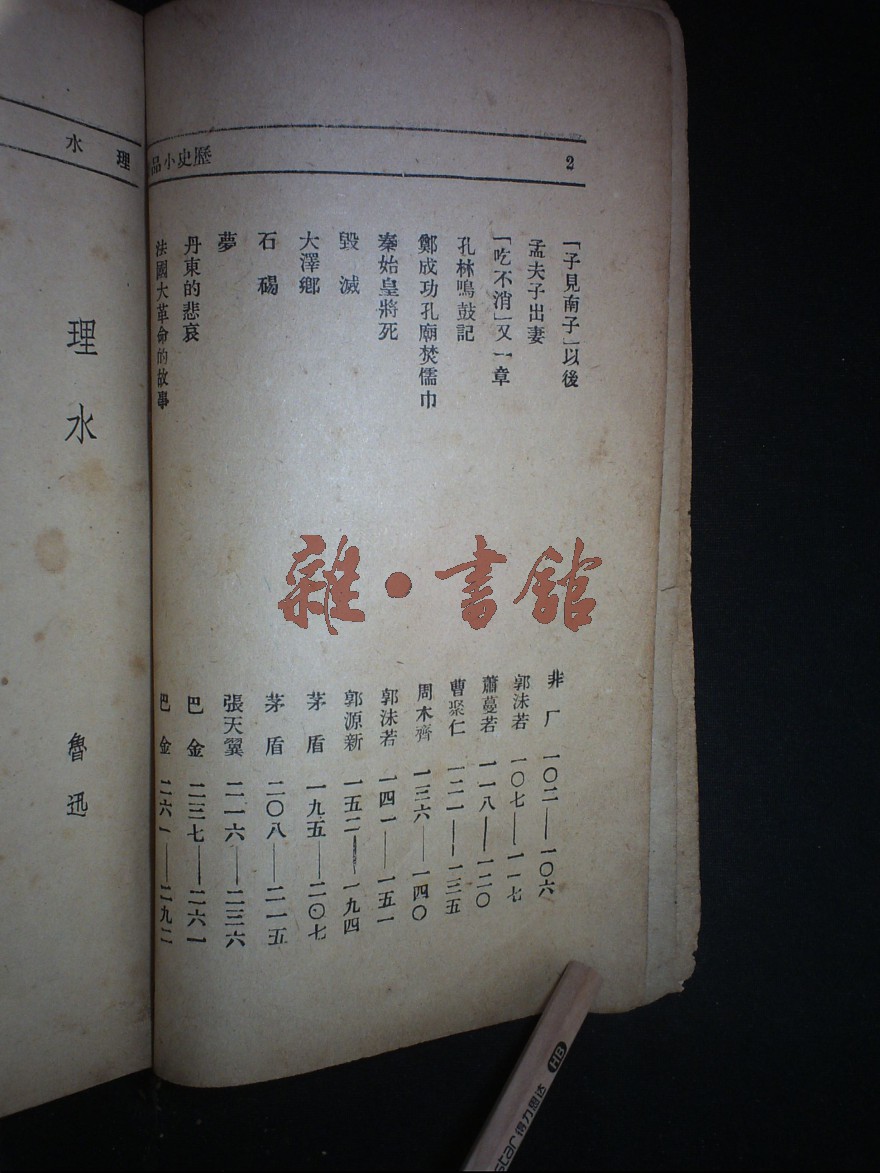 歷史小品
2
「子見南子」以後　非厂　一〇二——一〇六
孟夫子出妻　郭沫若　一〇七——一一七
「吃不消」又一章　蕭蔓若　一一八——一二〇
孔林鳴鼓記　曹聚仁　一二一——一三五
鄭成功孔廟焚儒巾　周木齊　一三六——一四〇
秦始皇將死　郭沫若　一四一——一五一
毀滅　郭源新　一五二——一九四
大澤鄉　茅盾　一九五——二〇七
石碣　茅盾　二〇八——二一五
夢　張天翼　二一六——二三六
丹東的悲哀　巴金　二三七——二六一
法國大革命的故事　巴金　二六一——二九二
理水
理水
魯迅
雜·書館
HB
star 得力思达